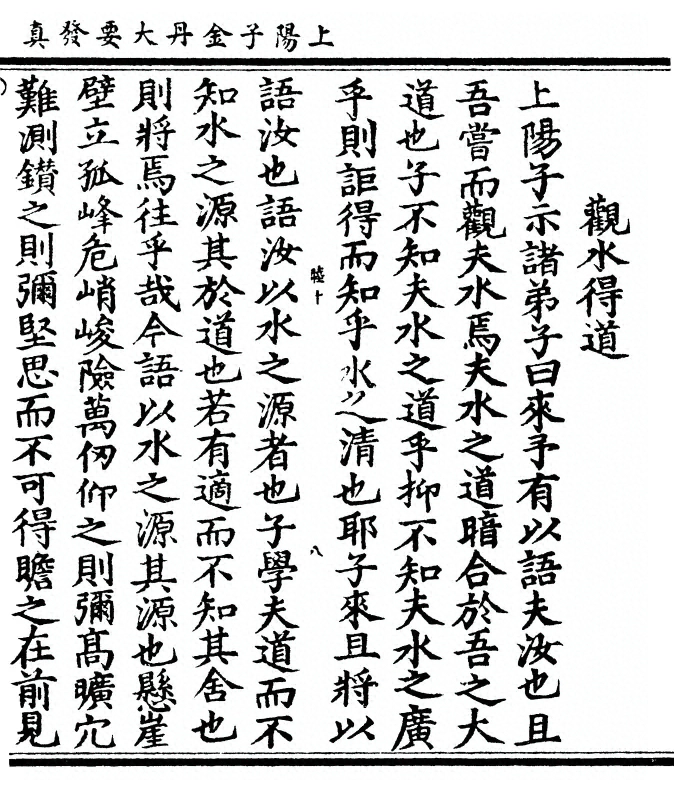 上陽子金丹大要發真
觀水得道
上陽子示諸弟子曰來予有以語夫汝也且
吾嘗而觀夫水焉夫水之道暗合於吾之大
道也子不知夫水之道乎抑不知夫水之廣
乎則詎得而知乎水之清也耶子來且將以
八
語汝也語汝以水之源者也子學夫道而不
知水之源其於道也若有適而不知其舍也
則將焉往乎哉今語以水之源其源也懸崖
壁立孤峰危峭峻險萬仞仰之則彌髙曠穴
難測鑚之則彌堅思而不可得瞻之在前見